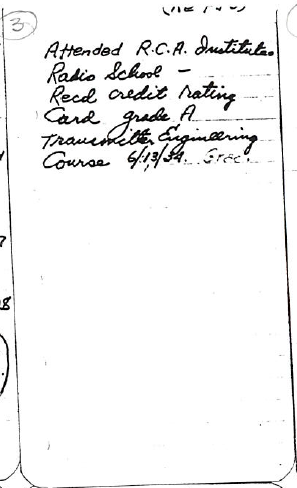 3
Attended R.C.A. Institutes
Radio School -
Recd credit rating
Card grade A
Transmitter Engineering
Course 6/13/34.